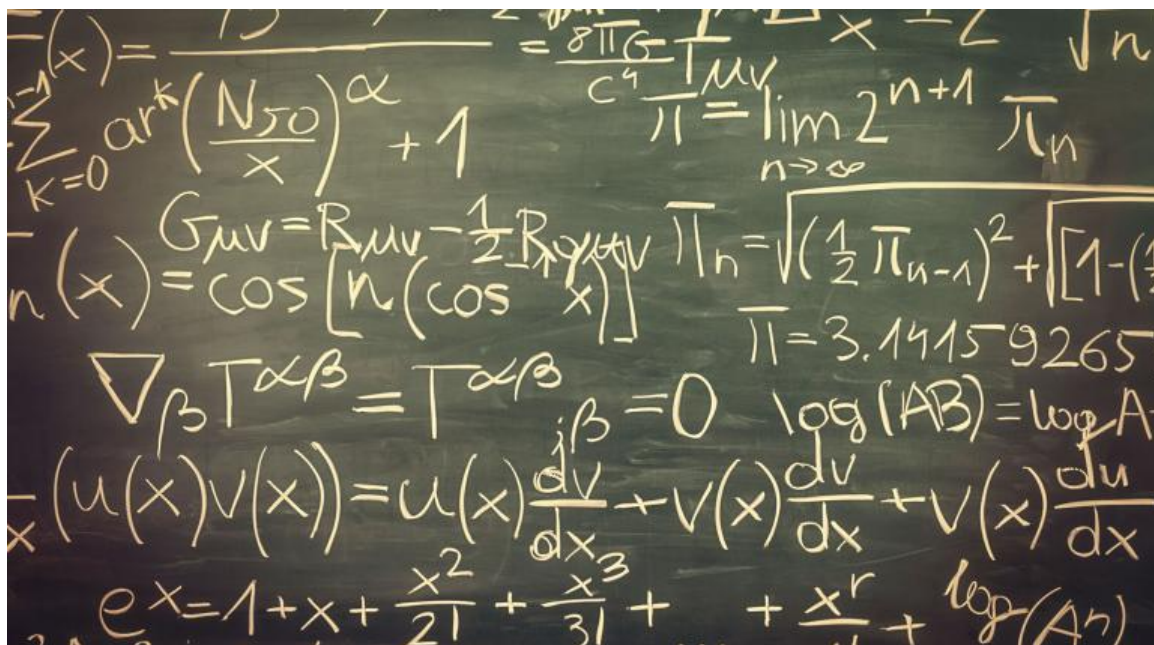 (x) =
= 8πG/c⁴ Tμν
x
√n
∑ k=0 ar^k (N50/x)^α + 1
π = lim n→∞ 2^(n+1) π_n
Gμν = Rμν - 1/2 R
π_n = √((1/2 π_(n-1))² + √[1-(1
n(x) = cos[n(cos x)]
π = 3.14159265
∇_β T^αβ = T^αβ_;β = 0
log(AB) = log A
x (u(x)v(x)) = u(x) dv/dx + v(x) dv/dx + v(x) du/dx
e^x = 1 + x + x²/2! + x³/3! + + x^r + log(A^n)